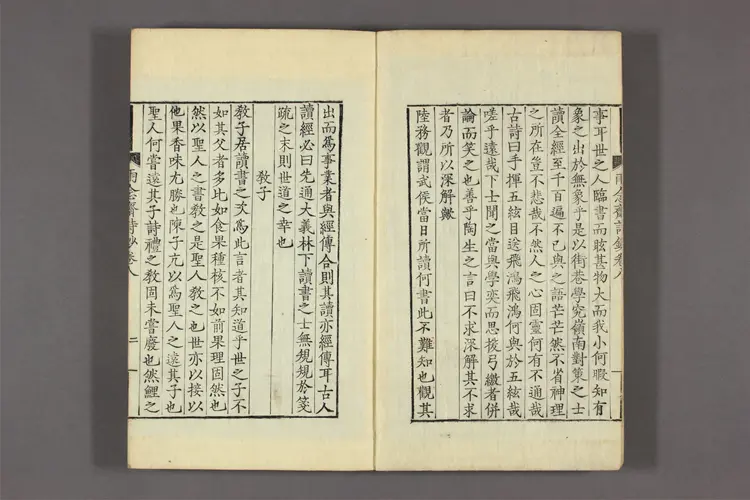 事耳世之人臨書而眩甚物大而我小何暇知有
象之出於無象乎是以街巷學究嶺南對策之士
讀全經至千百遍不已與之語芒芒然不省神理
之所在豈不悲哉不然人之心固靈何有不通哉
古詩曰手揮五絃目送飛鴻飛鴻何與於五絃哉
嗟乎遠哉下士聞之當與學奕而思援弓繳者併
論而笑之也善乎陶生之言曰不求深解其不求
者乃所以深解歟
陸務觀謂武侯當日所讀何書此不難知也觀其
出而爲事業者與經傳合則其讀亦經傳耳古人
讀經必曰先通大義林下讀書之士無規規於箋
疏之末則世道之幸也
教子
教子居讀書之次爲此言者其知道乎世之子不
如其父者多比如食果種核不如前果理固然也
然以聖人之書教之是聖人教之也世亦以接以
他果香味尤勝也陳子亢以爲聖人之遠其子也
聖人何嘗遠其子詩禮之教固未嘗廢也然鯉之
二